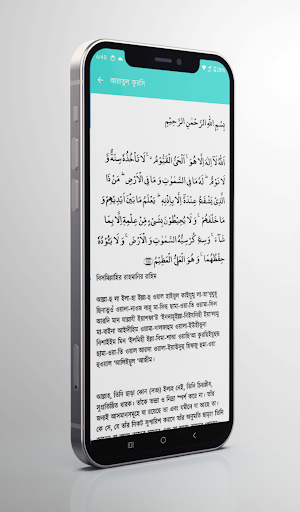 6:48
আয়াতুল কুরসি
بِسْمِ اللهِ الرَّحْمٰنِ الرَّحِيْمِ
اَللهُ لَآ اِلٰهَ اِلَّا هُوَ ۚ اَلْحَيُّ الْقَيُّوْمُ ۚ لَا تَاْخُذُهٗ سِنَةٌ وَّ
لَا نَوْمٌ ؕ لَهٗ مَا فِى السَّمٰوٰتِ وَ مَا فِى الْاَرْضِ ؕ مَنْ ذَا
الَّذِيْ يَشْفَعُ عِنْدَهٗٓ اِلَّا بِاِذْنِهٖ ؕ يَعْلَمُ مَا بَيْنَ اَيْدِيْهِمْ وَ
مَا خَلْفَهُمْ ۚ وَ لَا يُحِيْطُوْنَ بِشَيْءٍ مِّنْ عِلْمِهٖٓ اِلَّا بِمَا
شَآءَ ۚ وَسِعَ كُرْسِيُّهُ السَّمٰوٰتِ وَ الْاَرْضَ ۚ وَ لَا يَـُٔوْدُهٗ
حِفْظُهُمَا ۚ وَ هُوَ الْعَلِيُّ الْعَظِيْمُ
বিসমিল্লাহির রাহমানির রাহিম
আল্লা-হু লা ইলা-হা ইল্লা-হু ওয়াল হাইয়ুল কাইয়ূমু লা-তা'খুযুহূ
ছিনাতুওঁ ওয়ালা-নাওম লাহূ মা-ফিছ ছামা-ওয়া-তি ওয়ামা-ফিল
আরদি মান যাল্লাযী ইয়াশফা'উ 'ইনদাহূইল্লা-বিইযনিহী ইয়া'লামু
মা-বাইনা আইদীহিম ওয়ামা-খালফাহুম ওয়ালা-ইউহীতূনা
বিশাইইম মিন 'ইলমিহী ইল্লা-বিমা-শাআ ওয়াছি'আ কুরছিইয়ুহুছ
ছামা-ওয়া-তি ওয়াল আরদা ওয়ালা-ইয়াঊদুহূ হিফজু হুমা-ওয়া
হুওয়াল 'আলিইয়ুল 'আজীম।
আল্লাহ, তিনি ছাড়া কোন (সত্য) ইলাহ নেই, তিনি চিরঞ্জীব,
সুপ্রতিষ্ঠিত ধারক। তাঁকে তন্দ্রা ও নিদ্রা স্পর্শ করে না। তাঁর
জন্যই আসমানসমূহে যা রয়েছে তা এবং যমীনে যা আছে তা।
কে সে, যে তাঁর নিকট সুপারিশ করবে তাঁর অনুমতি ছাড়া? তিনি